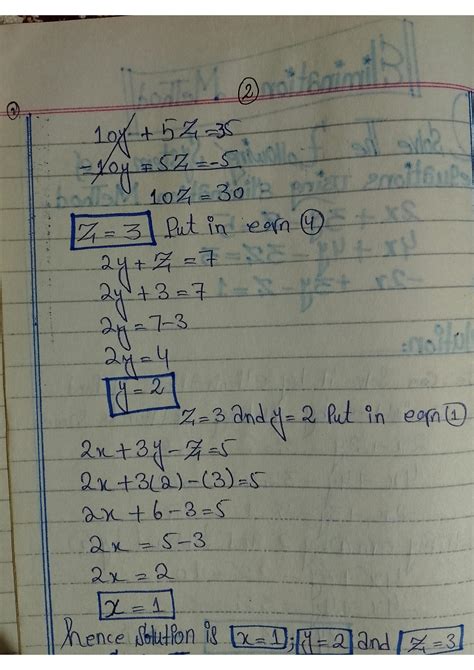 ②
10y + 5Z = 35
-10y ∓ 5Z = -5
10Z = 30
Z = 3 Put in eqrn ④
2y + Z = 7
2y + 3 = 7
2y = 7-3
2y = 4
y = 2
Z=3 and y=2 Put in eqrn ①
2x + 3y - Z = 5
2x + 3(2) - (3) = 5
2x + 6 - 3 = 5
2x = 5-3
2x = 2
x = 1
hence solution is x=1; y=2 and Z=3